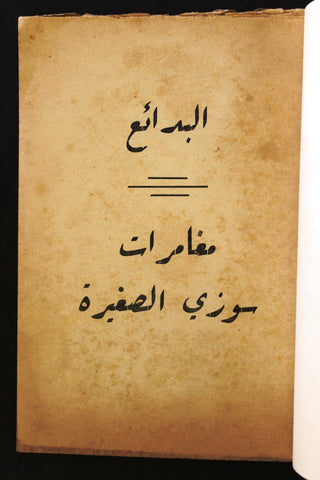 البدائع
مغامرات
سوزي الصغيرة